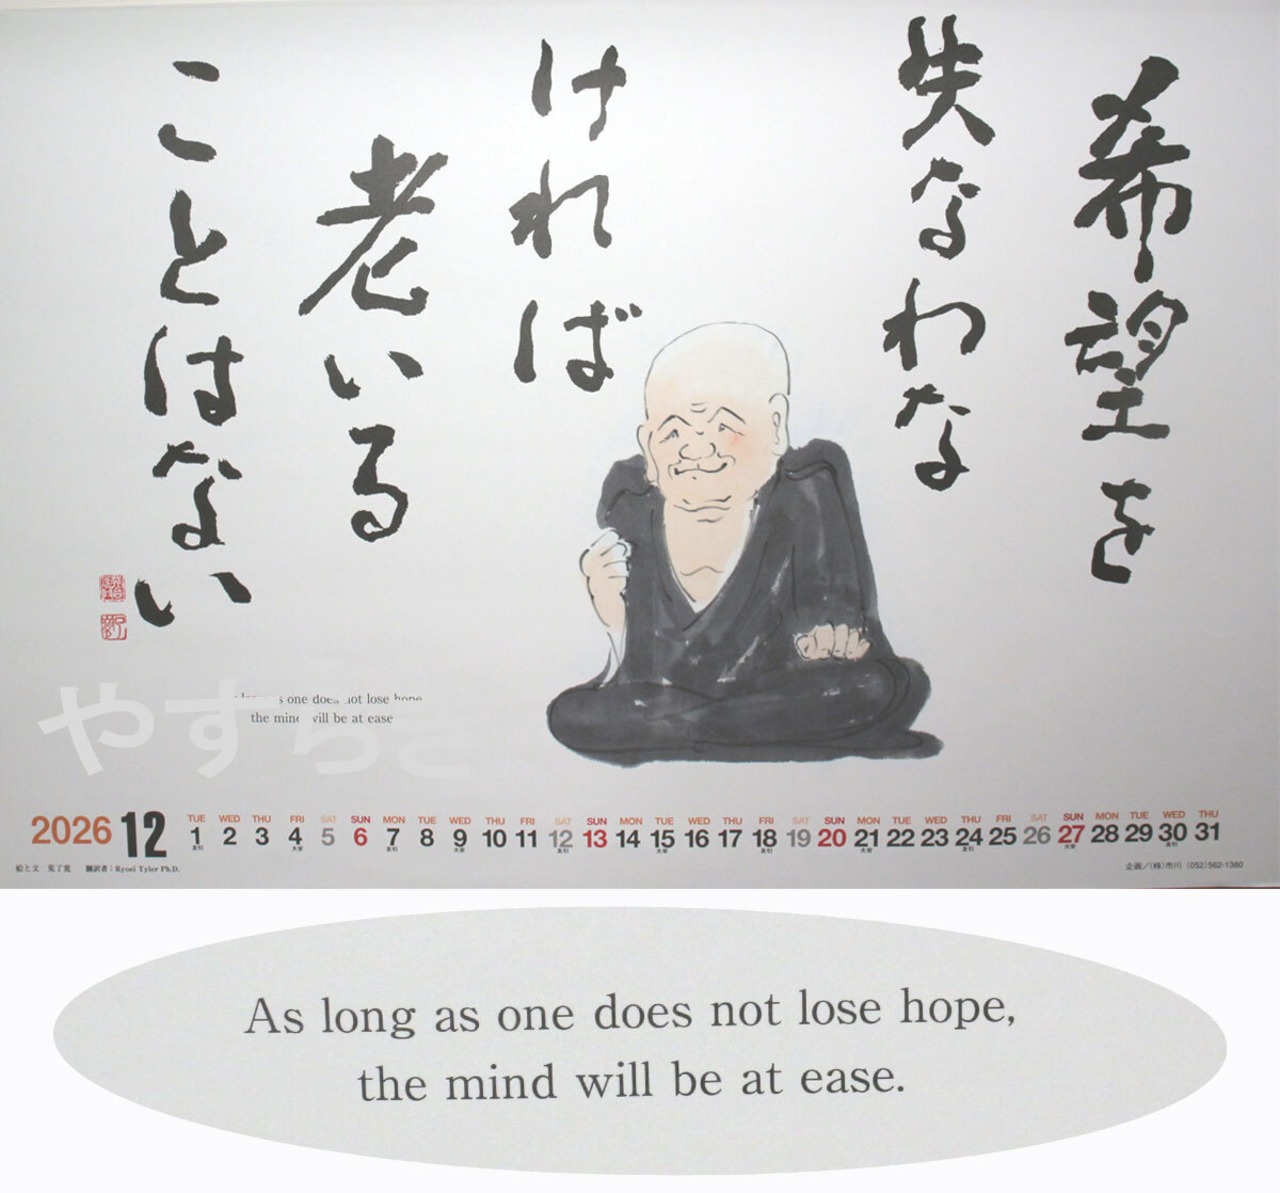 希望を
失なわな
ければ
老いる
ことはない
s one does not lose hope
the mind will be at ease
やすらぎ
2026 12
TUE WED THU FRI SAT SUN MON TUE WED THU FRI SAT SUN MON TUE WED THU FRI SAT SUN MON TUE WED THU FRI SAT SUN MON TUE WED THU
1 2 3 4 5 6 7 8 9 10 11 12 13 14 15 16 17 18 19 20 21 22 23 24 25 26 27 28 29 30 31
友引 大安 友引 大安 友引 大安 友引 大安 友引 大安 友引
絵と文 荒了寛 翻訳者:Ryoei Tyler Ph.D.
企画/(株)市川 (052)562-1380
As long as one does not lose hope,
the mind will be at ease.